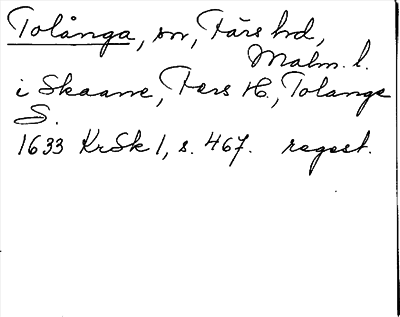 Tolånga, sn, Färs hd,
Malm. l.
i Skaane, Færs H., Tolange
S.
1633 KrSk 1, s. 467. regest.